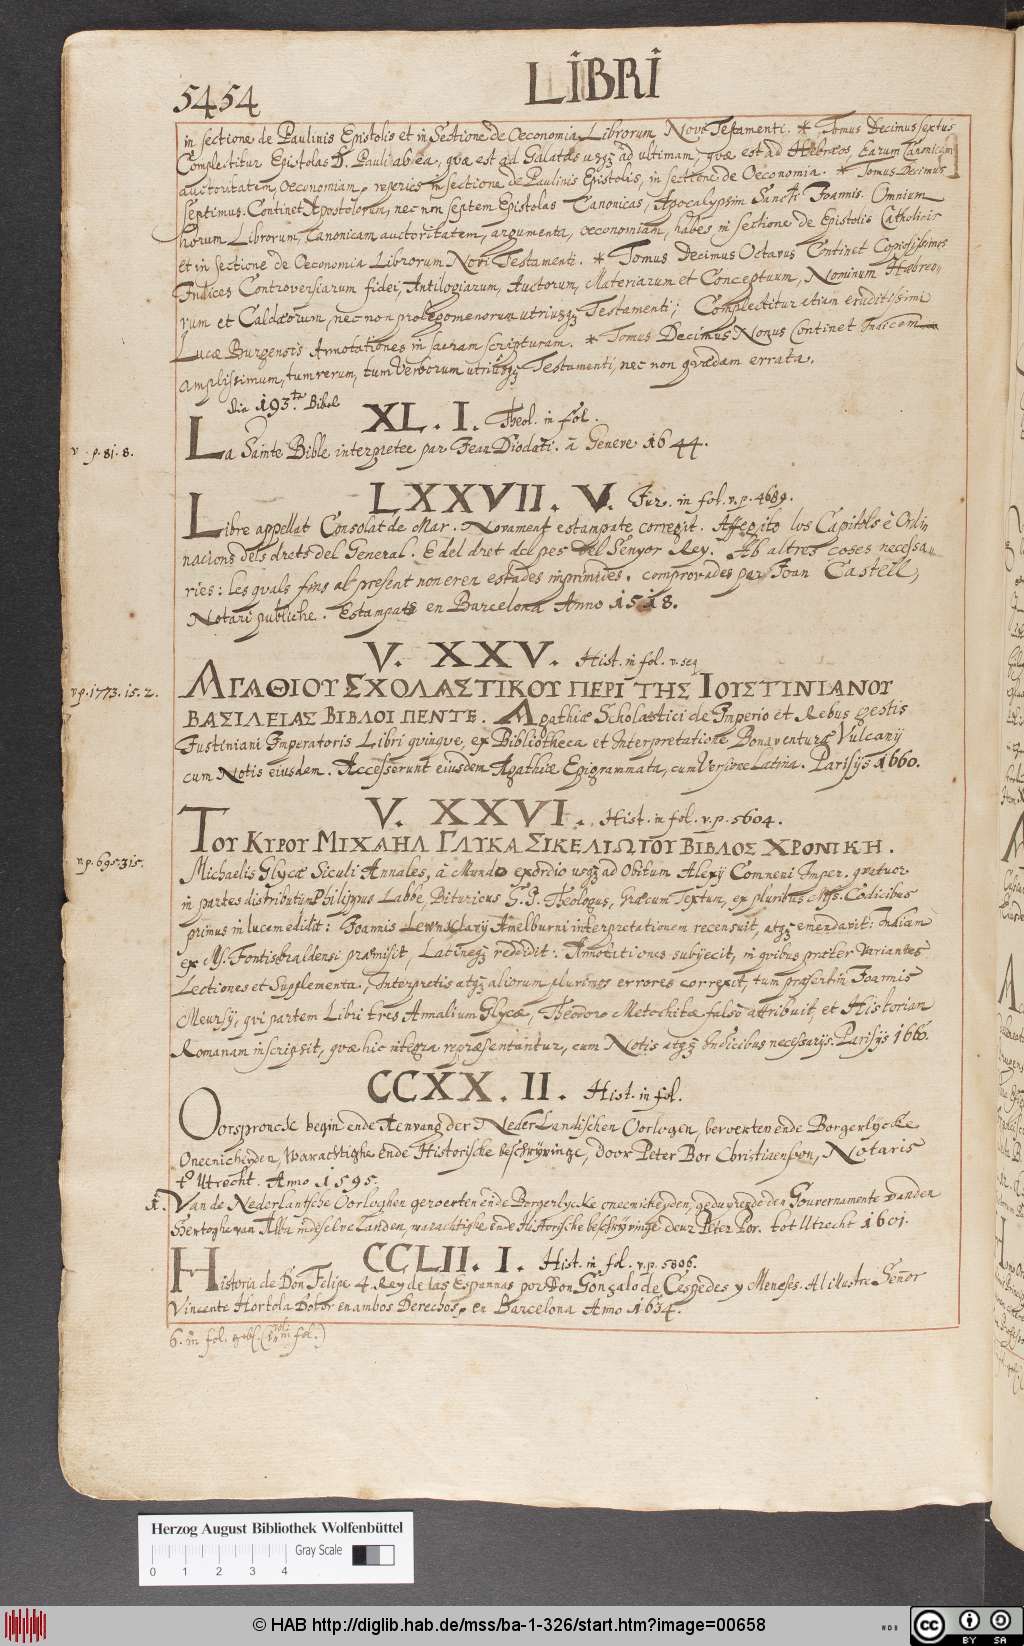 5454
LIBRI
in sectione de Paulinis Epistolis et in Sectione de Oeconomia Librorum Novi Testamenti. * Tomus Decimus sextus
Complectitur Epistolas D. Pauli ab ea, quæ est ad Galatas usq3 ad ultimam, quæ est ad Hebræos, Earum Canonicam
auctoritatem, Oeconomiam, reperies in sectione de Paulinis Epistolis, in sectione de Oeconomia. * Tomus Decimus
Septimus. Continet Apostolorum, nec non septem Epistolas Canonicas, Apocalypsim Sancti Joannis. Omnium
horum Librorum, Canonicam auctoritatem, argumenta, oeconomiam, habes in sectione de Epistolis Catholicis
et in sectione de Oeconomia Librorum Novi Testamenti. * Tomus Decimus Octavus Continet Copiosissimos
Indices Controversiarum fidei, Antilogiarum, Auctorum, Materiarum et Conceptuum, Nominum Hæbreo-
rum et Caldæorum, nec non prolegomenorum utriusq3 Testamenti; Complectitur etiam eruditissimi
Lucæ Burgensis Annotationes in sacram scripturam. * Tomus Decimus Nonus Continet Indicem
amplissimum, tum rerum, tum Verborum utriusq3 Testamenti, nec non quædam errata.
193 Bibel
XL. I. Theol. in fol.
v. p. 81. 8.
La Sainte Bible interpretee par Jean Diodati. à Geneve 1644.
LXXVII. V. Jur. in fol. v. p. 4689.
Libre appellat Consolat de Mar. Novament estampate corregit. Affegito los Capitols è Ordi
nacions dels drets del General. E del dret del pes del Senyor Rey. Ab altres coses necessa-
ries: les quals fins al present non eren estades imprimides. comprovades par Joan Castell,
Notari publiche. Estampats en Barcelona Anno 1518.
V. XXV. Hist. in fol. v. seq
v. p. 1773. 15. 2.
ΑΓΑΘΙΟΥ ΣΧΟΛΑΣΤΙΚΟΥ ΠΕΡΙ ΤΗΣ ΙΟΥΣΤΙΝΙΑΝΟΥ
ΒΑΣΙΛΕΙΑΣ ΒΙΒΛΟΙ ΠΕΝΤΕ. Agathiæ Scholastici de Imperio et Rebus gestis
Justiniani Imperatoris Libri quinque, ex Bibliotheca et Interpretatione Bonaventuræ Vulcanij
cum Notis eiusdem. Accesserunt eiusdem Agathiæ Epigrammata, cum Versione Latina. Parisijs 1660.
V. XXVI. Hist. in fol. v. p. 5604.
v. p. 695. 315.
ΤΟΥ ΚΥΡΟΥ ΜΙΧΑΗΛ ΓΛΥΚΑ ΣΙΚΕΛΙΩΤΟΥ ΒΙΒΛΟΣ ΧΡΟΝΙΚΗ.
Michaelis Glycæ Siculi Annales, à Mundo exordio usq3 ad Obitum Alexij Comneni Imper. quatuor
in partes distributi. Philippus Labbe, Bituricus S. J. Theologus, Græcum Textum, ex pluribus Mss. Codicibus
primus in lucem edidit: Joannis Lewnclavij Amelburni interpretationem recensuit, atq3 emendavit: Indiam
ex Ms. Fontisbraldensi præmisit, Latineq3 reddidit: Annotationes subijecit, in quibus præter Variantes
Lectiones et Supplementa, Interpretis atq3 aliorum plurimos errores correxit, tum præsertim Joannis
Meursij, qui partem Libri tres Annalium Glycæ, Theodoro Metochitæ falsò attribuit, et Historiam
Romanam inscripsit, quæ hic integra repræsentantur, cum Notis atq3 Indicibus necessarijs. Parisijs 1660.
CCXX. II. Hist. in fol.
Oorspronck begin ende Aenvang der Nederlandischen Oorlogen, beroerten ende Borgerlycke
Oneenicheyden, Warachtighe ende Historische beschryvinge, door Peter Bor Christiaensoon, Notaris
to Utrecht. Anno 1595.
Van de Nederlantsche Oorloghen geroerten ende Borgerlycke oneenicheyden, geduyrende den Gouvernamente vanden
Hertoghe van Alba inde selve Landen, warachtighe ende Historische beschryvinge deur Peter Bor. tot Utrecht 1601.
CCLII. I. Hist. in fol. v. p. 5806.
Historia de Don Felipe 4. Rey de las Espannas por Don Gonzalo de Cespedes y Meneses. Al illustre Señor
Vincente Hortola Dotor en ambos Derechos, en Barcelona Anno 1634.
6. in fol.
Herzog August Bibliothek Wolfenbüttel
Gray Scale
0 1 2 3 4
© HAB http://diglib.hab.de/mss/ba-1-326/start.htm?image=00658
cc BY SA